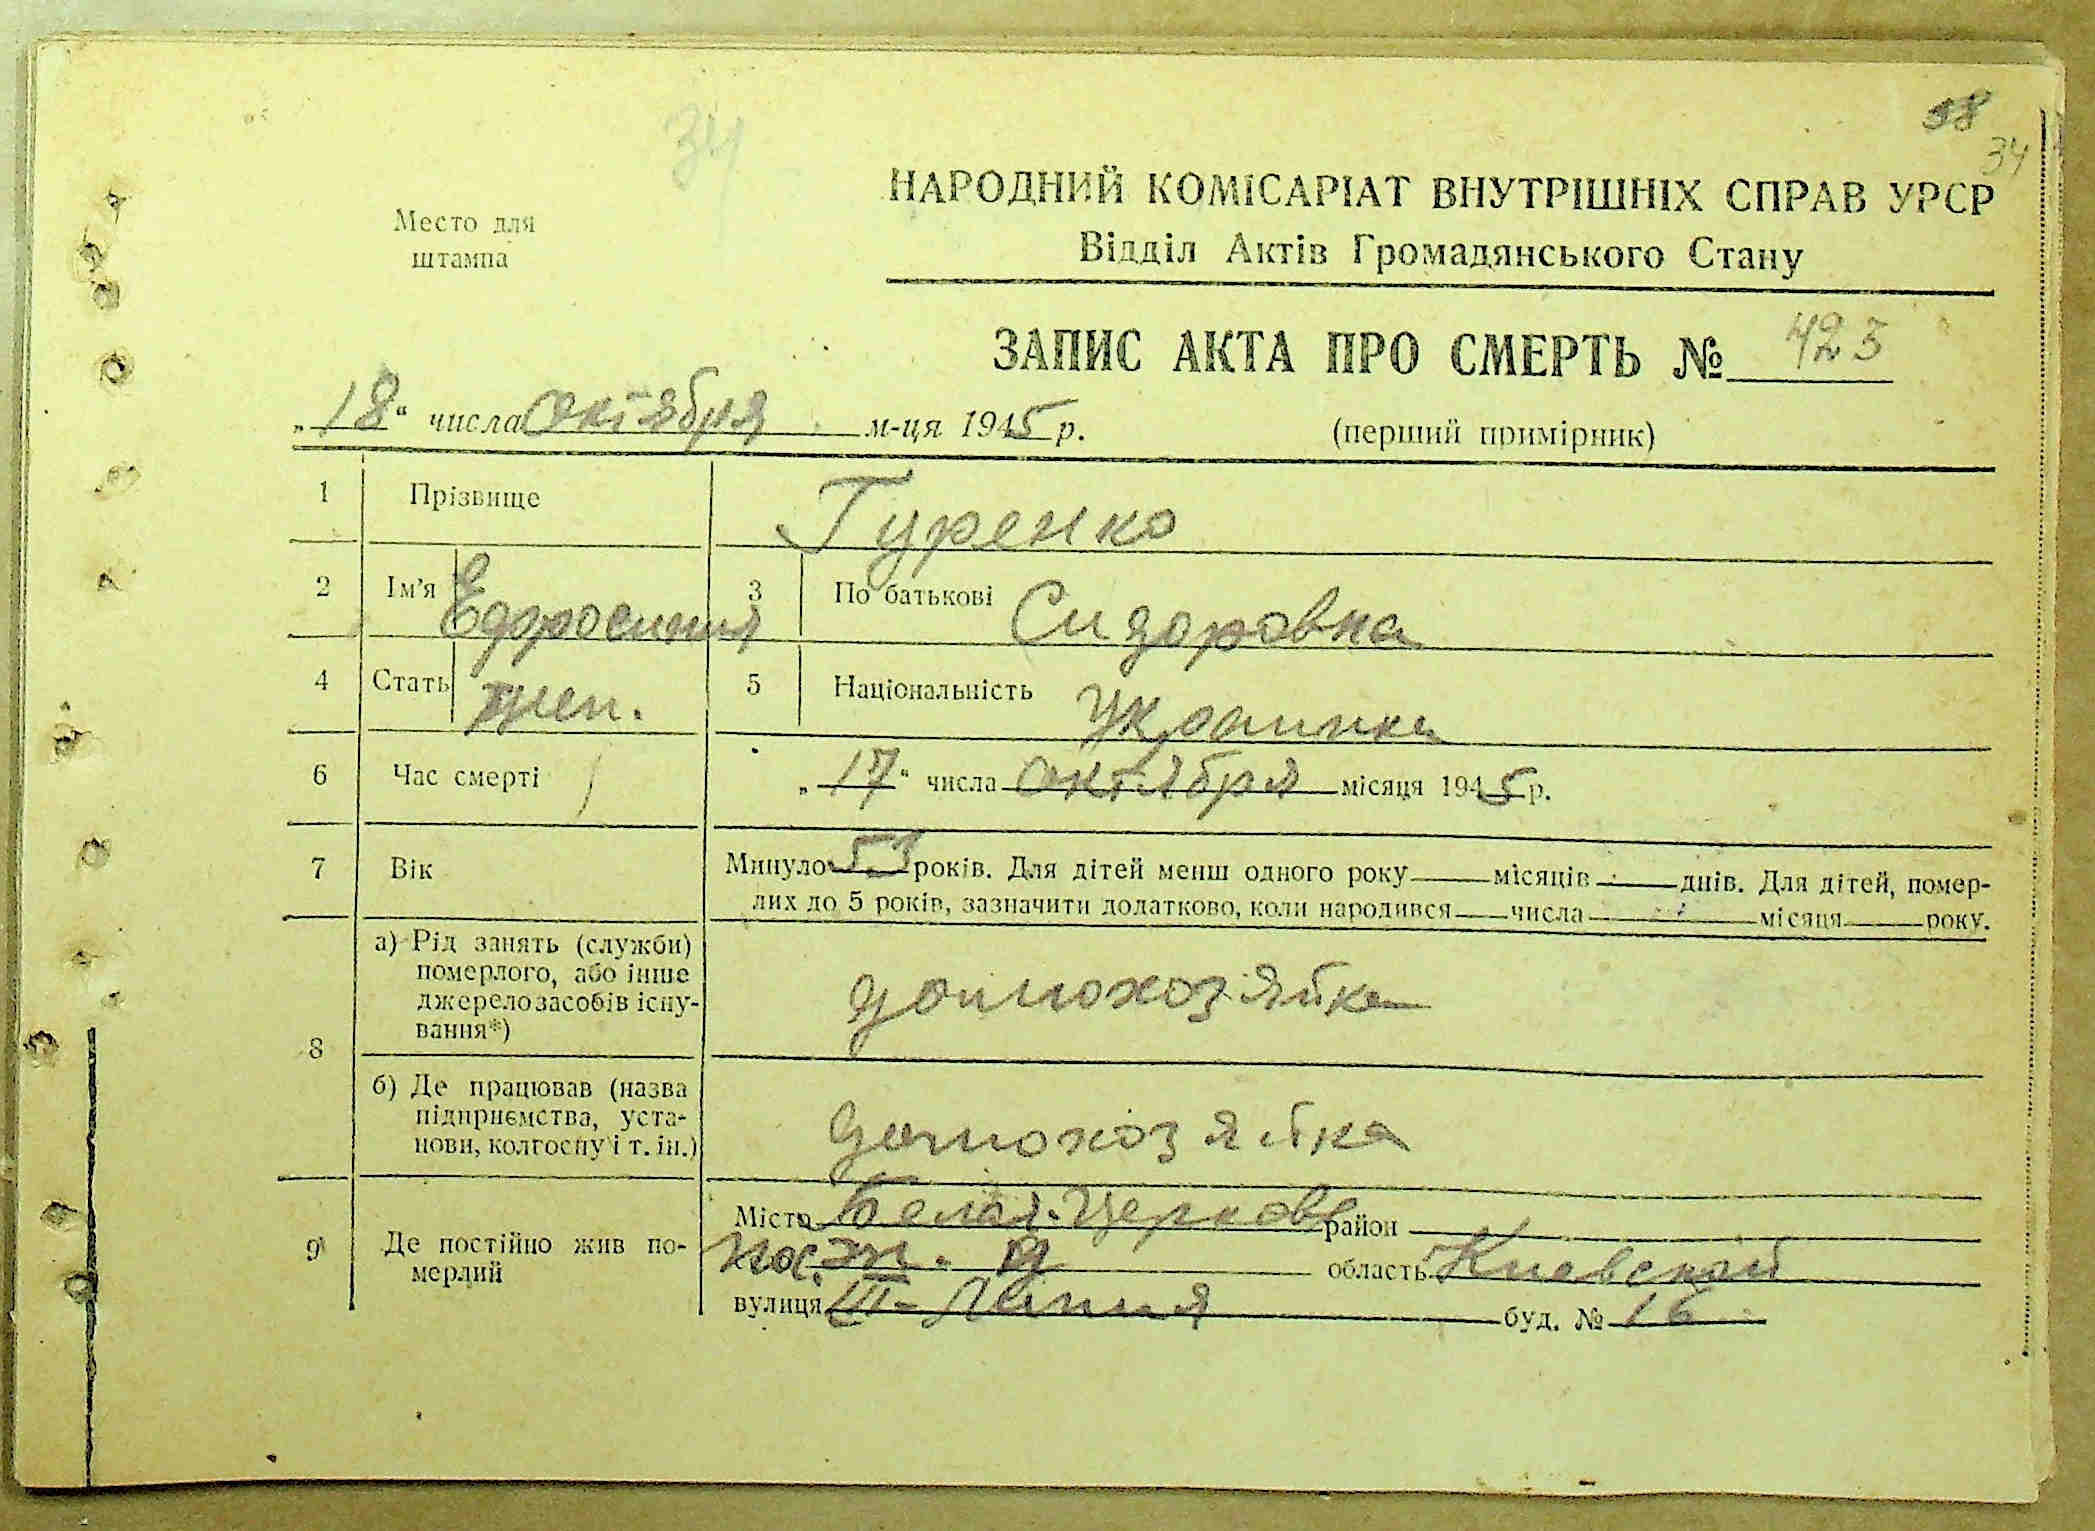 38
34
34
Место для
штампа
НАРОДНИЙ КОМІСАРІАТ ВНУТРІШНІХ СПРАВ УРСР
Відділ Актів Громадянського Стану
ЗАПИС АКТА ПРО СМЕРТЬ № 423
„18“ числа октября м-ця 1945 р.
(перший примірник)
1 Прізвище Гуренко
2 Ім’я Ефросиния 3 По батькові Сидоровна
4 Стать жен. 5 Національність Украинка
6 Час смерті „17“ числа октября місяця 1945 р.
7 Вік Минуло 53 років. Для дітей менш одного року місяців днів. Для дітей, помер-
лих до 5 років, зазначити додатково, коли народився числа місяця року.
8 а) Рід занять (служби)
померлого, або інше
джерело засобів існу-
вання*)
домохозяйка
б) Де працював (назва
підприємства, уста-
нови, колгоспу і т. ін.)
домохозяйка
9 Де постійно жив по-
мерлий
Місто Белая-Церковь район
область Киевской
вулиця III-Линия буд. № 16